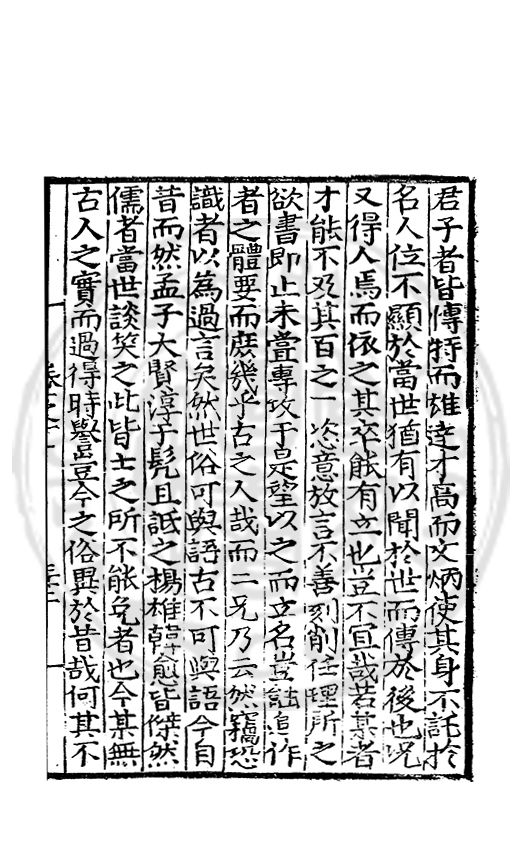 君子者皆傳特而雄達才高而文炳使其身不託於
名人位不顯於當世猶有以聞於世而傳於後也況
又得人焉而依之其卒能有立也豈不宜哉若某者
才能不及其百之一恣意放言不善刻削任理所之
欲書即止未嘗專攻于是望以之而立名豈能追作
者之體要而庶幾乎古之人哉而二兄乃云然竊恐
識者以為過言矣然世俗可與語古不可與語今自
昔而然孟子大賢淳于髡且詆之揚雄韓愈皆傑然
儒者當世談笑之此皆士之所不能免者也今某無
古人之實而過得時譽豈今之俗異於昔哉何其不